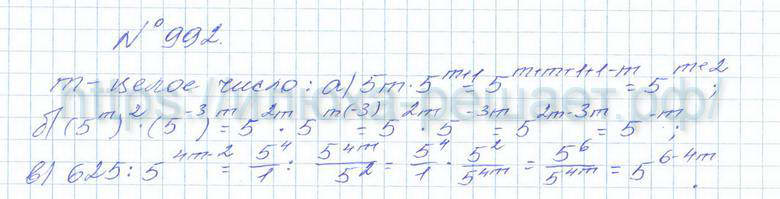 № 992.
m - целое число: а) 5m · 5^{m+1} = 5^{m+m+1+1-m} = 5^{m+2};
б) (5^m)^2 · (5^{-3})^m = 5^{2m} · 5^{m(-3)} = 5^{2m} · 5^{-3m} = 5^{2m-3m} = 5^{-m};
в) 625 : 5^{4m-2} = 5^4/1 : 5^{4m}/5^2 = 5^4/1 · 5^2/5^{4m} = 5^6/5^{4m} = 5^{6-4m}.